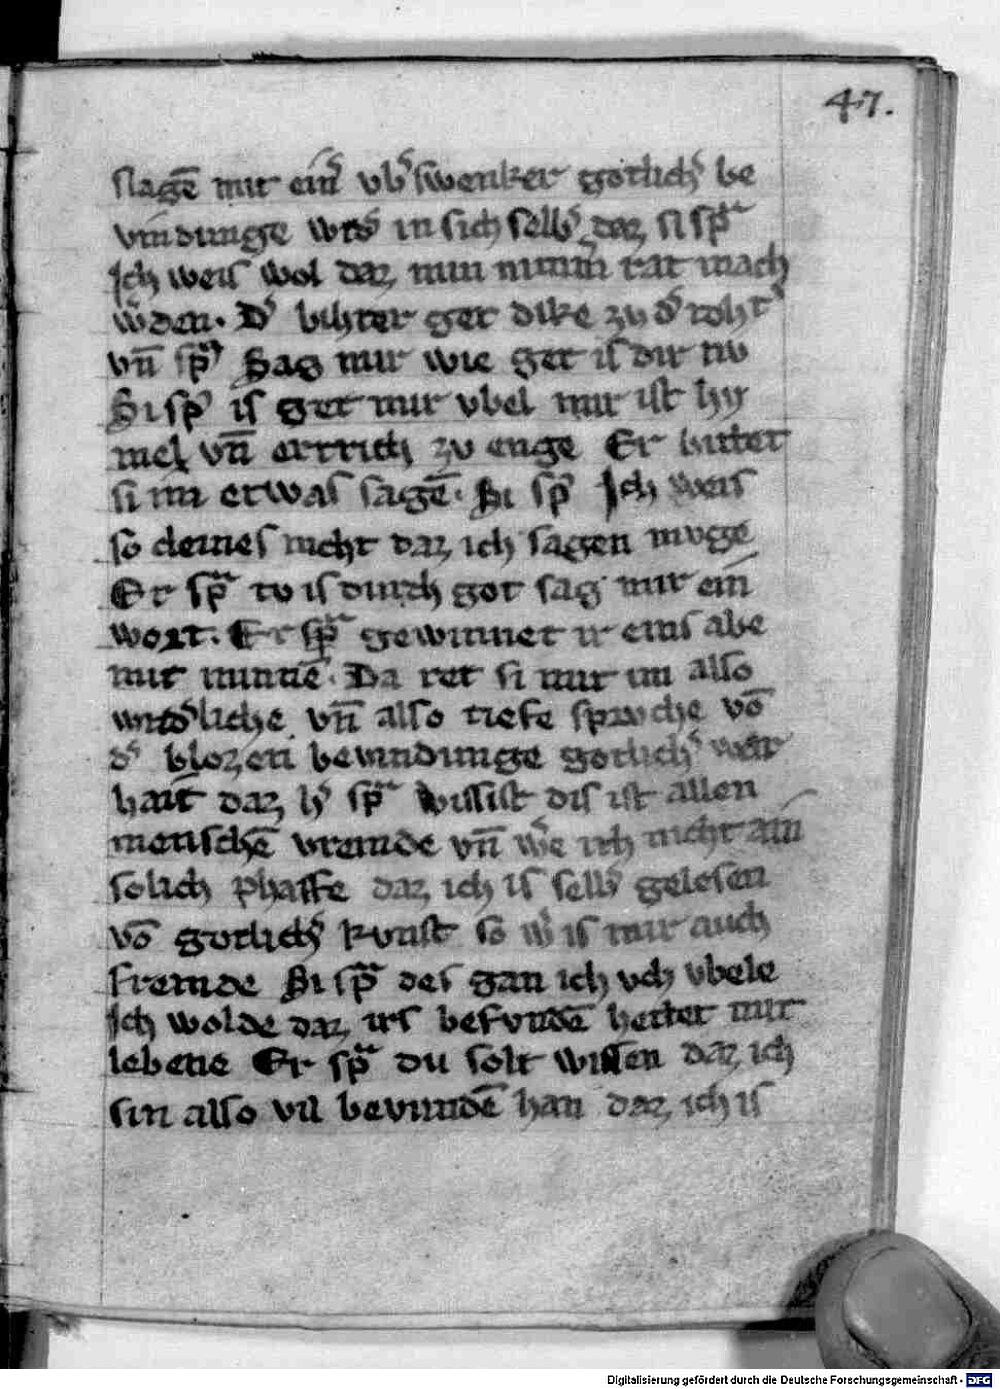 47.
slagē mit ein̄ vb̕swenker gotlich̕ be
vindunge wid̕ in sich selb̕ daz si sp͛ͣ
Ich weis wol daz min nimm̄ rat mach
w̕den. D̕ bihter get dike zu d̕ toht̕
vn̄ sp͛ͣ Sag mir wie get is dir nv
Si sp͛ is get mir vbel mir ist hy
mel vn̄ ertrich zv enge Er bittet
si im etwas sagē. Si sp͛ Ich weis
so cleines nicht daz ich sagen mvge
Er sp͛ͣ tv is durch got sag mir ein
wort. Er sp͛ͣ gewinnet ir eins abe
mit minnē. Da ret si mit im also
wnd̕liche vn̄ also tiefe spruche vō
d̕ blozen bevindunge gotlich̕ war
hait daz h̕ sp͛ͣ Wissist dis ist allen
menschē vremde vn̄ w̕e ich nicht ain
solich phaffe daz ich is selb̕ gelesen
vō gotlich̕ kvnst so w̕ is mir auch
fremde Si sp͛ͣ des gan ich vch vbele
Ich wolde daz irs befvndē hettet mit
lebene Er sp͛ͣ du solt wissen daz ich
sin also vil bevundē han daz ich is
Digitalisierung gefördert durch die Deutsche Forschungsgemeinschaft - DFG